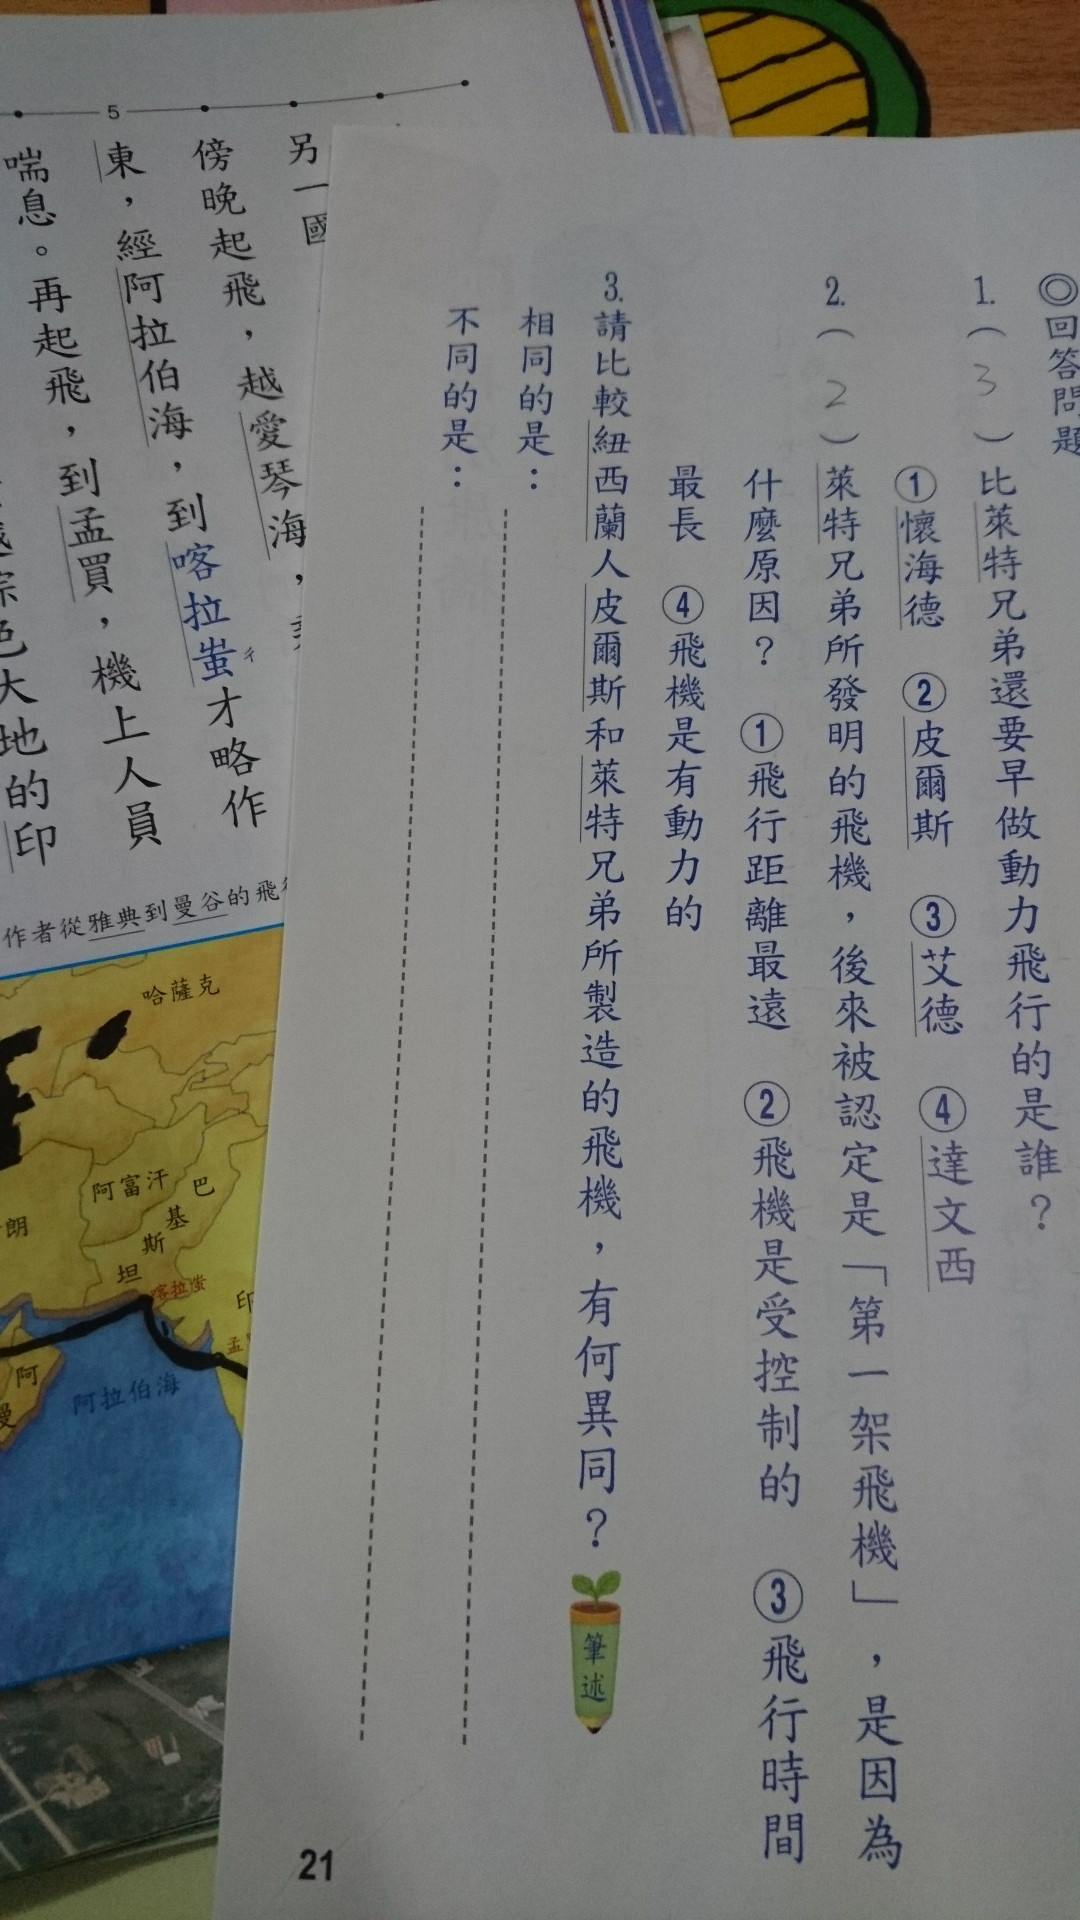 ◎回答問題
1.（3）比萊特兄弟還要早做動力飛行的是誰？
①懷海德 ②皮爾斯 ③艾德 ④達文西
2.（2）萊特兄弟所發明的飛機，後來被認定是「第一架飛機」，是因為
什麼原因？ ①飛行距離最遠 ②飛機是受控制的 ③飛行時間
最長 ④飛機是有動力的
3.請比較紐西蘭人皮爾斯和萊特兄弟所製造的飛機，有何異同？
筆述
相同的是：
不同的是：
21
5
另一國
傍晚起飛，越愛琴海，
東，經阿拉伯海，到喀拉蚩才略作
ㄔ
喘息。再起飛，到孟買，機上人員
色大地的印
作者從雅典到曼谷的飛
哈薩克
阿富汗
巴基斯坦
喀拉蚩
朗
印
孟
阿
曼
阿拉伯海